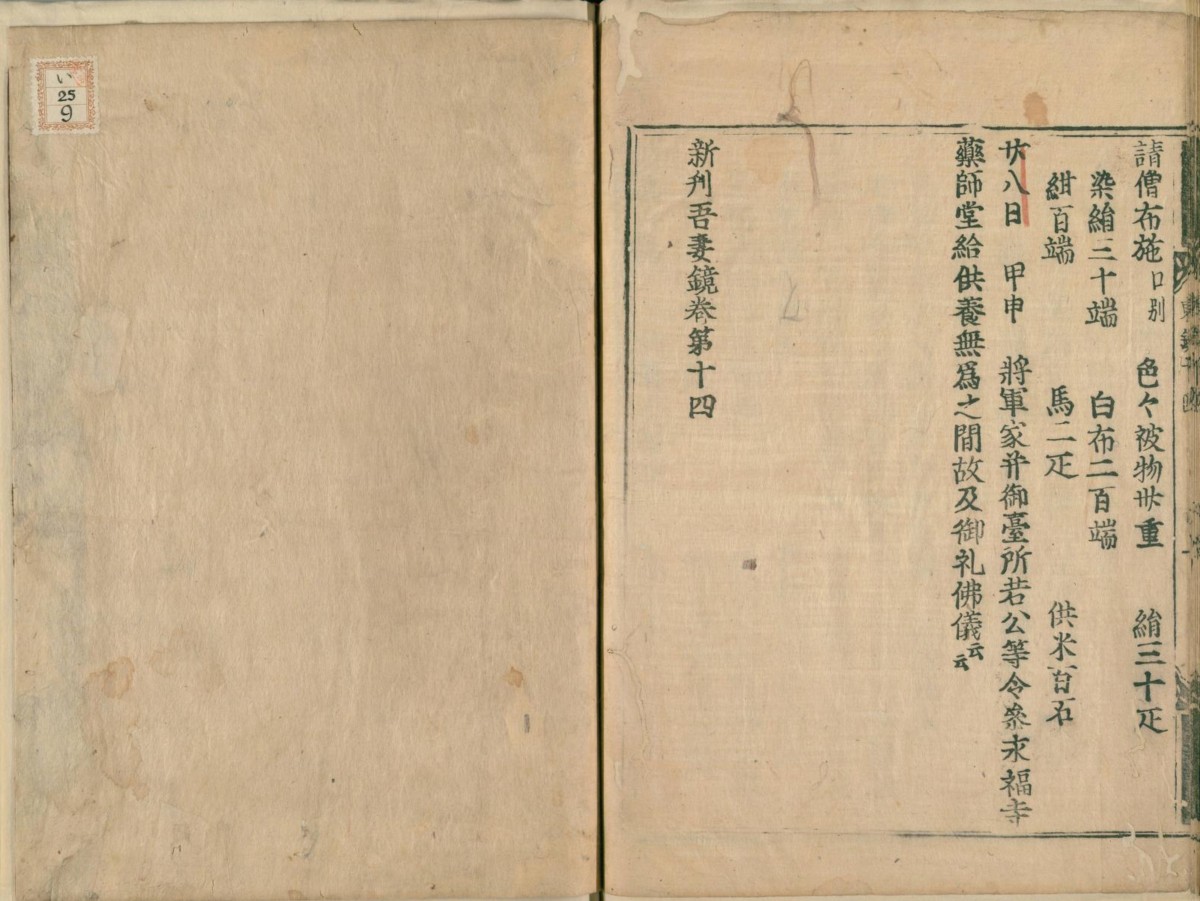 請僧布施 口別 色々被物卅重 絹三十疋
染絹三十端 白布二百端
紺百端 馬二疋 供米百石
廿八日 甲申 將軍家并御臺所若公等令参永福寺
藥師堂給供養無爲之間故及御礼佛儀云云
新刋吾妻鏡卷第十四
い
25
9